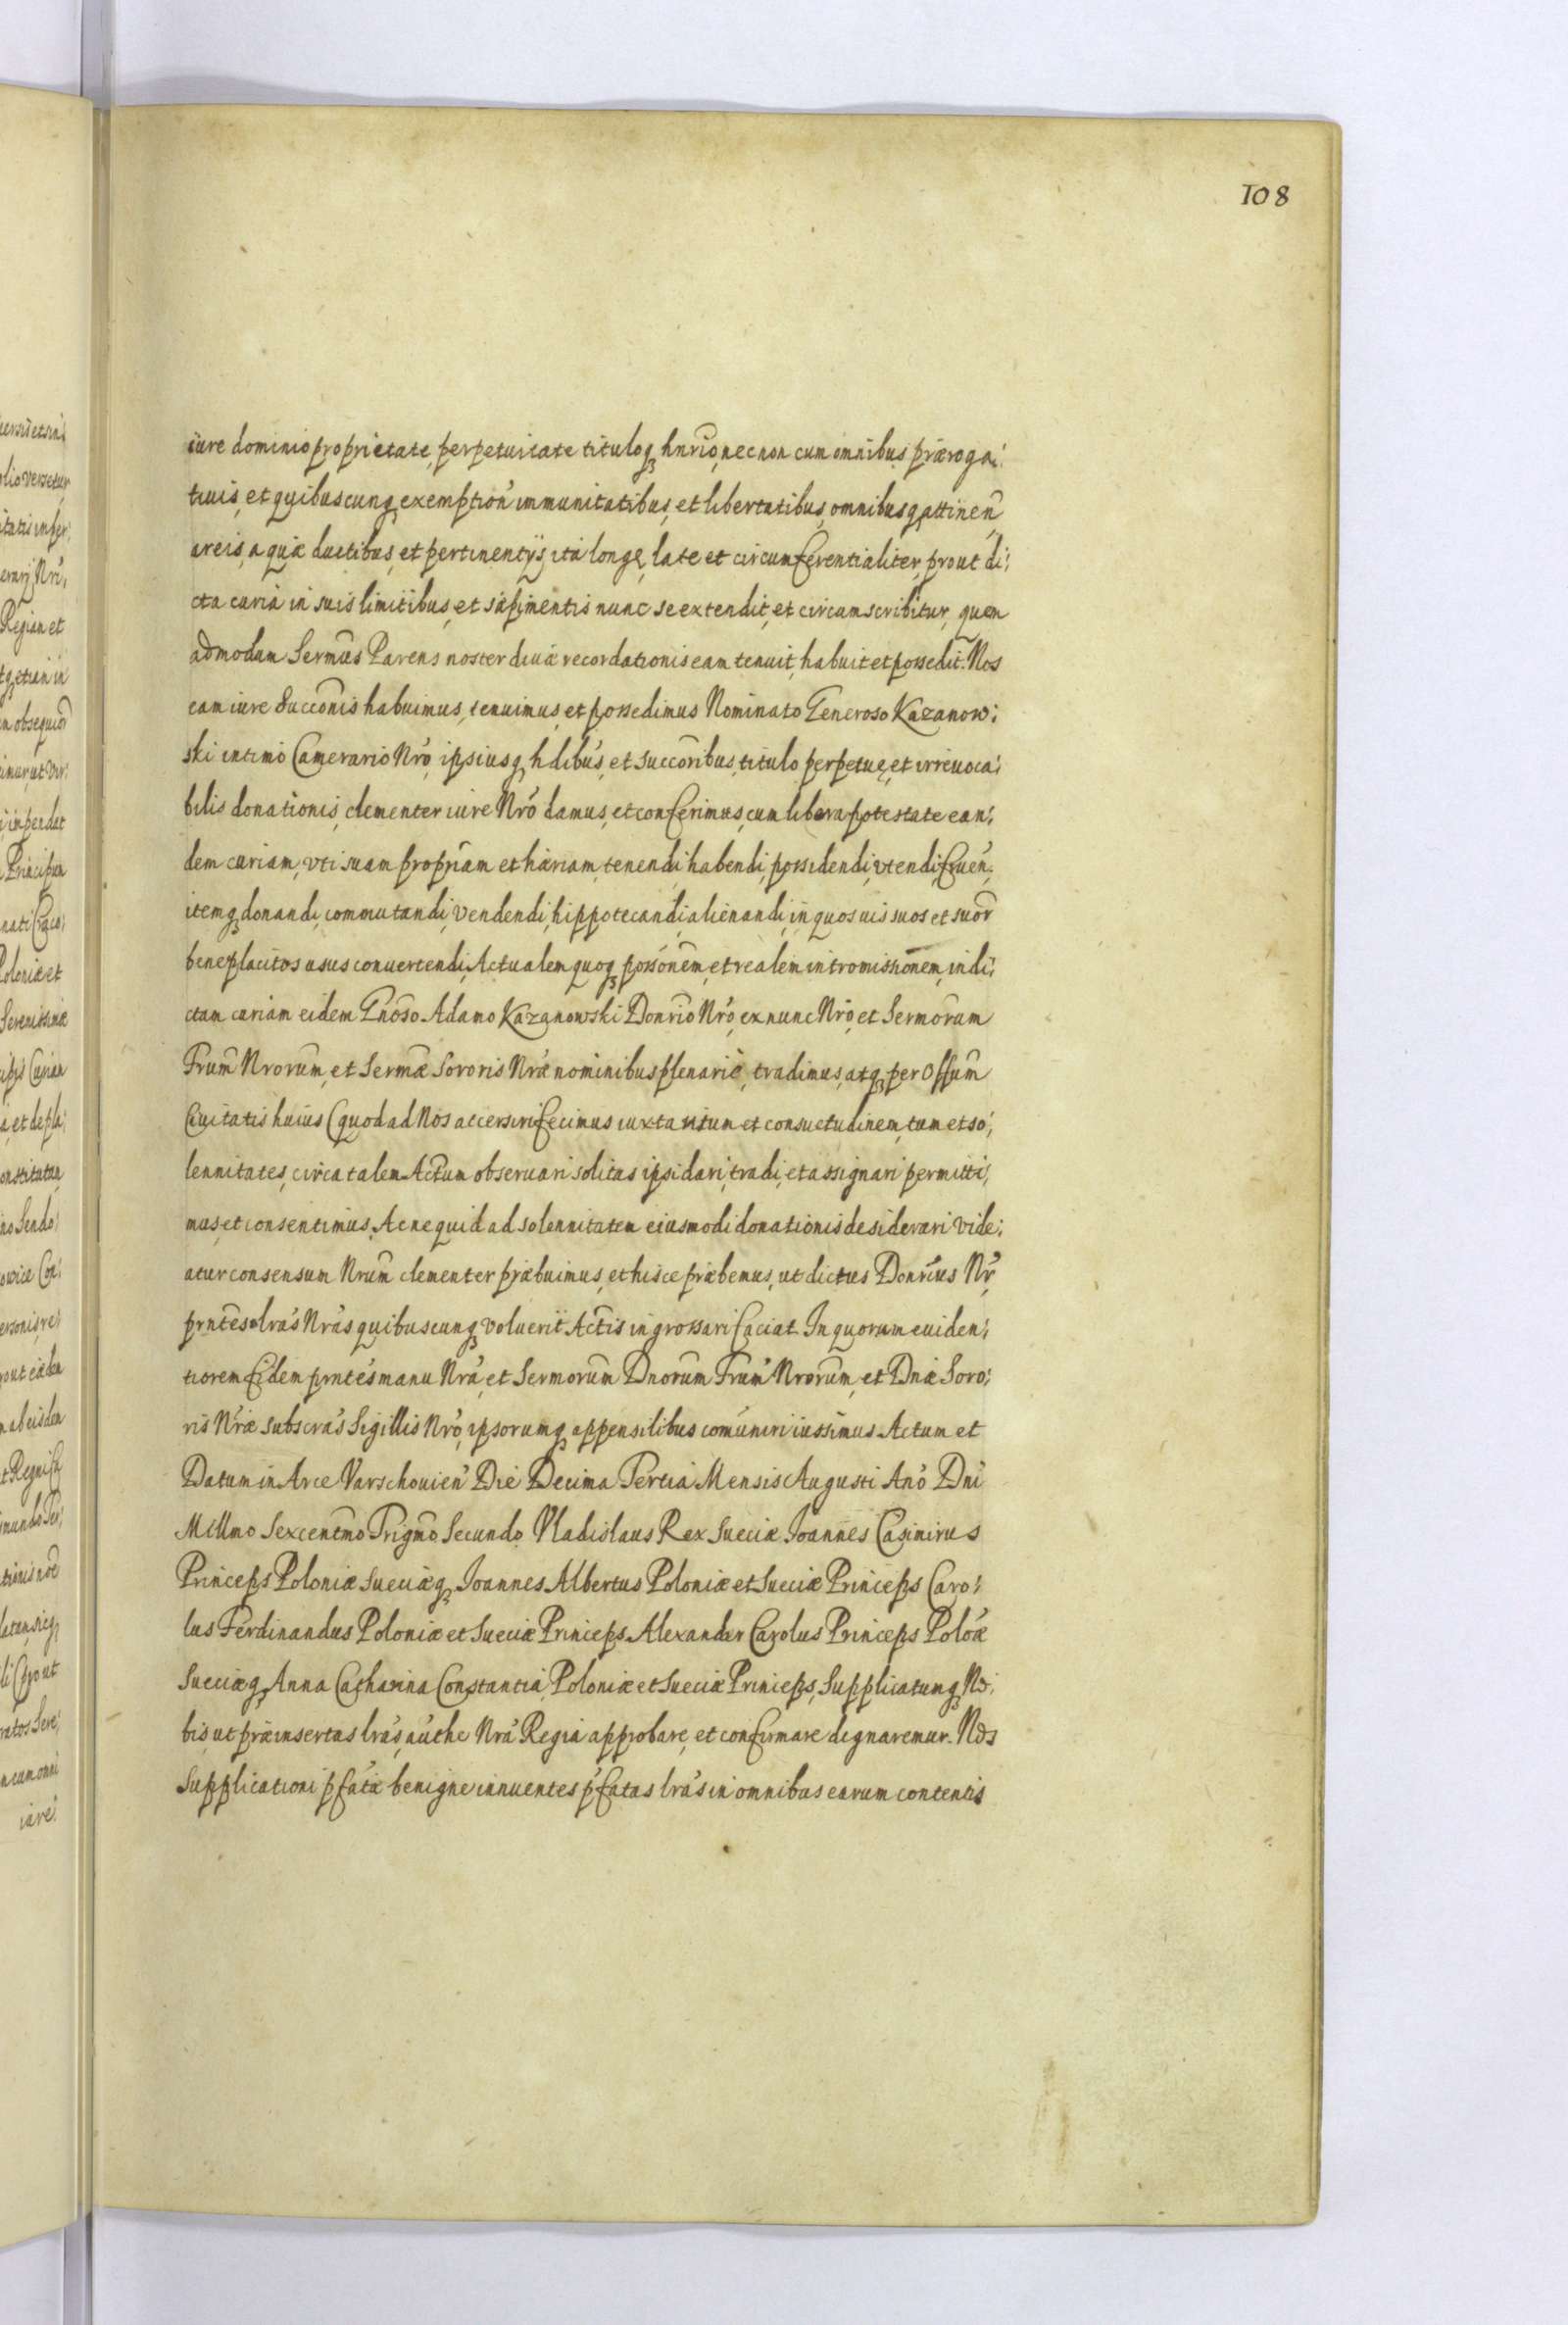 108
iure dominio proprietate, perpetuitate tituloq₃ hnrio, nec non cum omnibus præroga:
tiuis, et quibuscunq₃ exemption̄ immunitatibus, et libertatibus, omnibusq₃ attinen̄
areis, aquæ ductibus, et pertinentijs ità longe, late et circumferentialiter, prout di:
cta curia in suis limitibus, et sæpimentis nunc se extendit, et circumscribitur, quem
admodum Sermus Parens noster diuæ recordationis eam tenuit, habuit et possedit. Nos
eam iure Succōnis habuimus, tenuimus, et possedimus Nominato Generoso Kazanow:
ski intimo Camerario Nrō, ipsiusq₃ hdibus, et succoribus, titulo perpetuę, et irreuoca:
bilis donationis, clementer iure Nrō damus, et conferimus, cum libera potestate ean:
dem curiam, vti suam propriam et hæriam, tenendi, habendi, possidendi, vtendi, fruen̄:
itemq₃ donandi, commutandi, vendendi, hippotecandi, alienandi, in quosuis suos et suor̄
beneplacitos usus conuertendi, Actualem quoq₃ possōnem, et realem intromissionem, in di:
ctam curiam eidem Gnōso Adamo Kazanowski Donrio Nrō, ex nunc Nrō, et Sermorum
Frum̄ Nrorum, et Sermæ Sororis Nræ nominibus plenariè, tradimus, atq₃ per Offum
Ciuitatis huius (quod ad Nos accersiri fecimus iuxta ritum et consuetudinem, tum et so:
lennitates, circa talem Actum obseruari solitas ipsi dari, tradi, et assignari permitti:
mus, et consentimus. Ac ne quid ad solennitatem eiusmodi donationis desiderari vide:
atur consensum Nrum clementer præbuimus, et hisce præbemus, ut dictus Donrius Nr̄,
prntes lrās Nrās quibuscunq₃ voluerit Actis ingrossari faciat. In quorum euiden:
tiorem fidem prntes manu Nrā, et Sermorum Dnorum Frum̄ Nrorum, et Dnæ Soro:
ris Nræ subscrās Sigillis Nrō, ipsorumq₃ appensilibus comūniri iussimus. Actum et
Datum in Arce Varschouien̄ Die Decima Tertia Mensis Augusti Anō Dni
Millmo Sexcentmo Trigmo Secundo. Vladislaus Rex Sueciæ Ioannes Casimirus
Princeps Poloniæ Sueciæq₃ Ioannes Albertus Poloniæ et Sueciæ Princeps Caro:
lus Ferdinandus Poloniæ et Sueciæ Princeps Alexander Carolus Princeps Poloæ
Sueciæq₃ Anna Catharina Constantia, Poloniæ et Sueciæ Princeps, Supplicatumq₃ No:
bis, ut præinsertas lrās, authe Nrā Regia approbare, et confirmare dignaremur. Nos
Supplicationi pfatæ benigne innuentes pfatas lrās in omnibus earum contentis